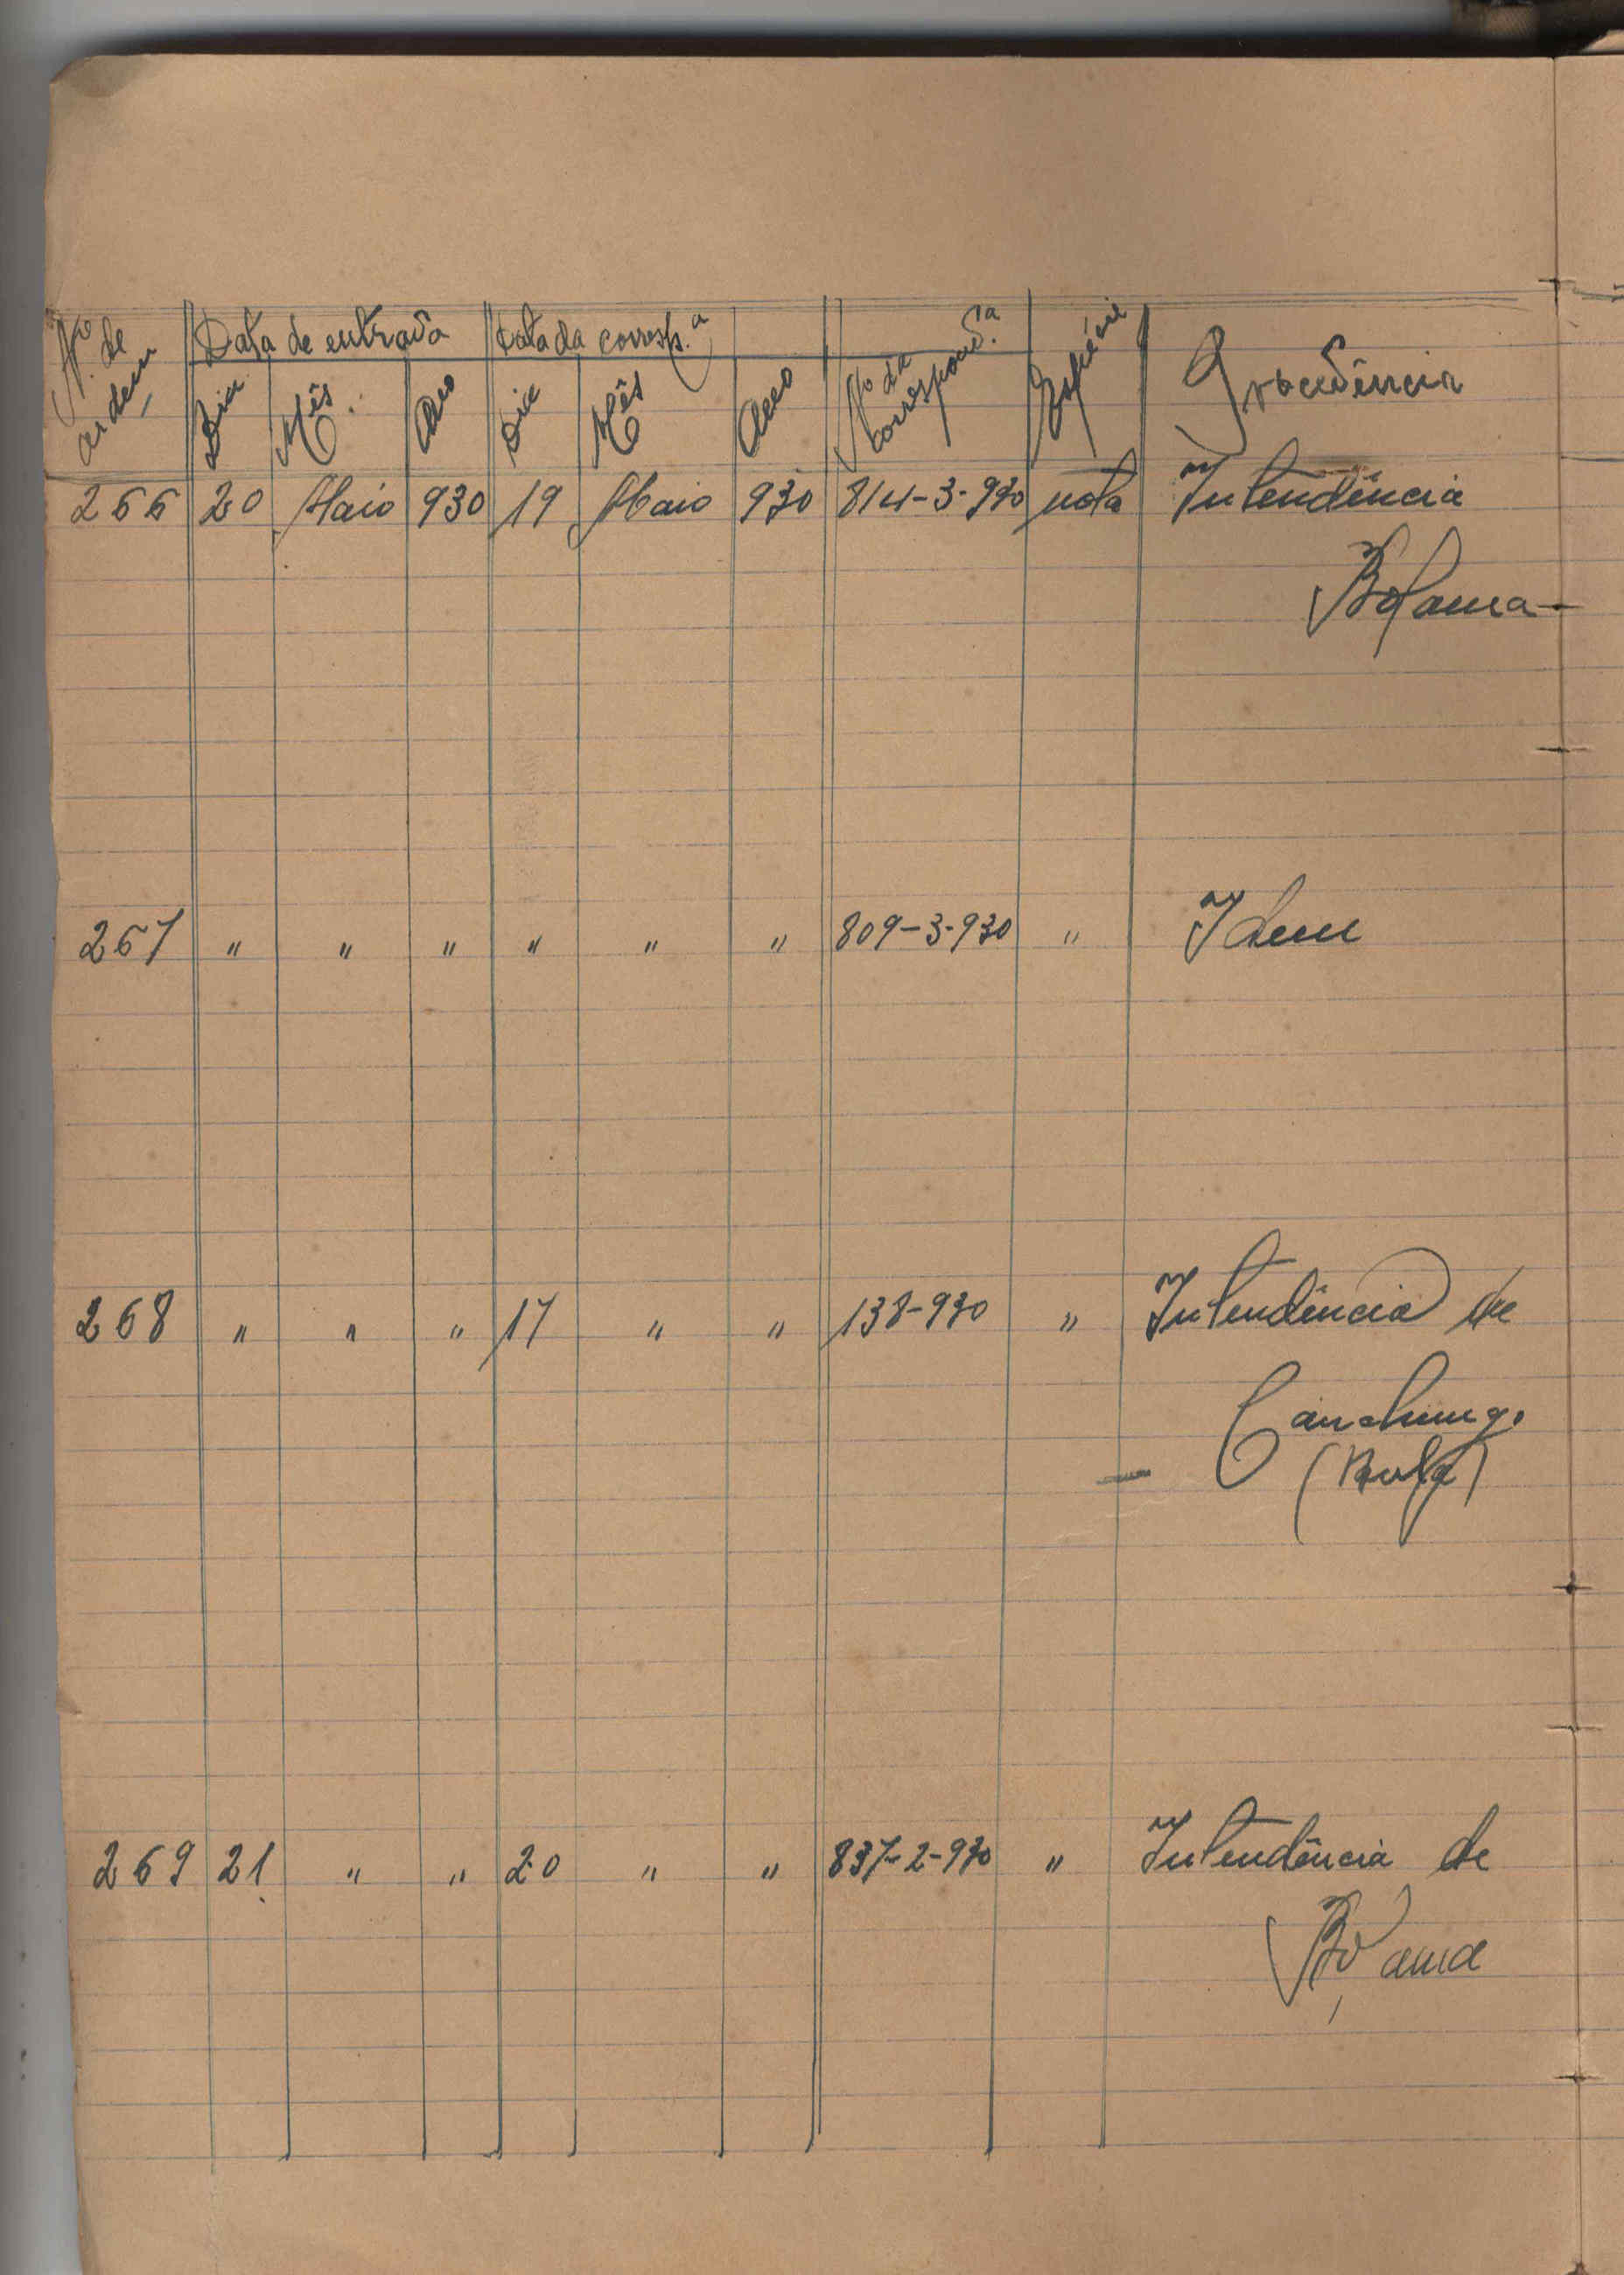 Nº de ordem Data de entrada Data da corresp.ª Nº da correspond.ª Espécie Procedência
Dia Mês Ano Dia Mês Ano
266 20 Maio 930 19 Maio 930 814-3-930 nota Intendência
Bolama
267 " " " " " " 809-3-930 " Idem
268 " " " 17 " " 138-930 " Intendência de
Canchungo
(Bula)
269 21 " " 20 " " 837-2-930 " Intendência de
Bolama